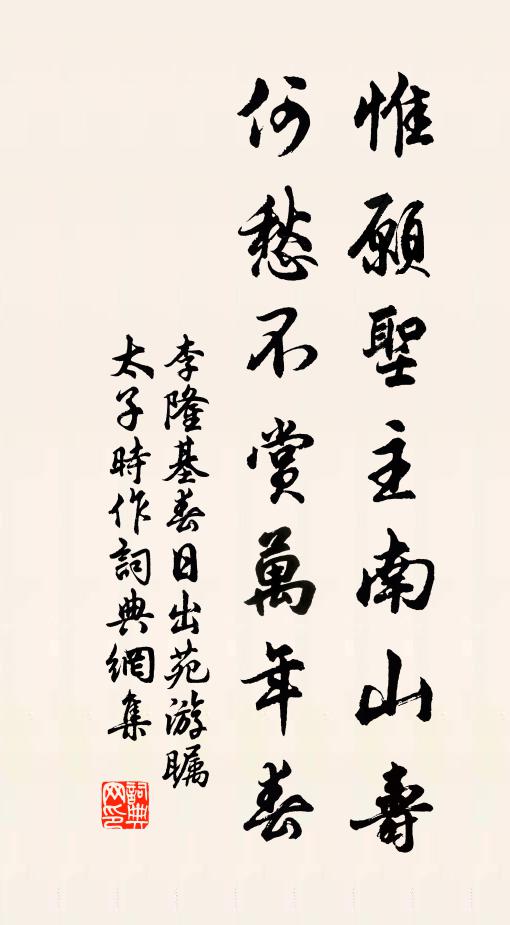 惟願聖主南山壽
何愁不賞萬年春
李隆基春日出苑游矚
太子時作詞典網集
詞典网印